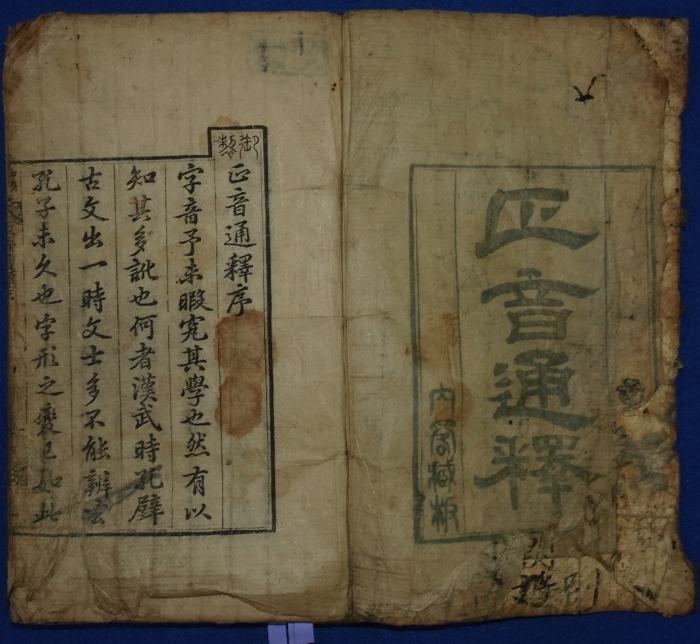 正音通釋
內閣藏板
御製
正音通釋序
字音予未暇究其學也然有以
知其多訛也何者漢武時孔壁
古文出一時文士多不能辨去
孔子未久也字形之變已如此